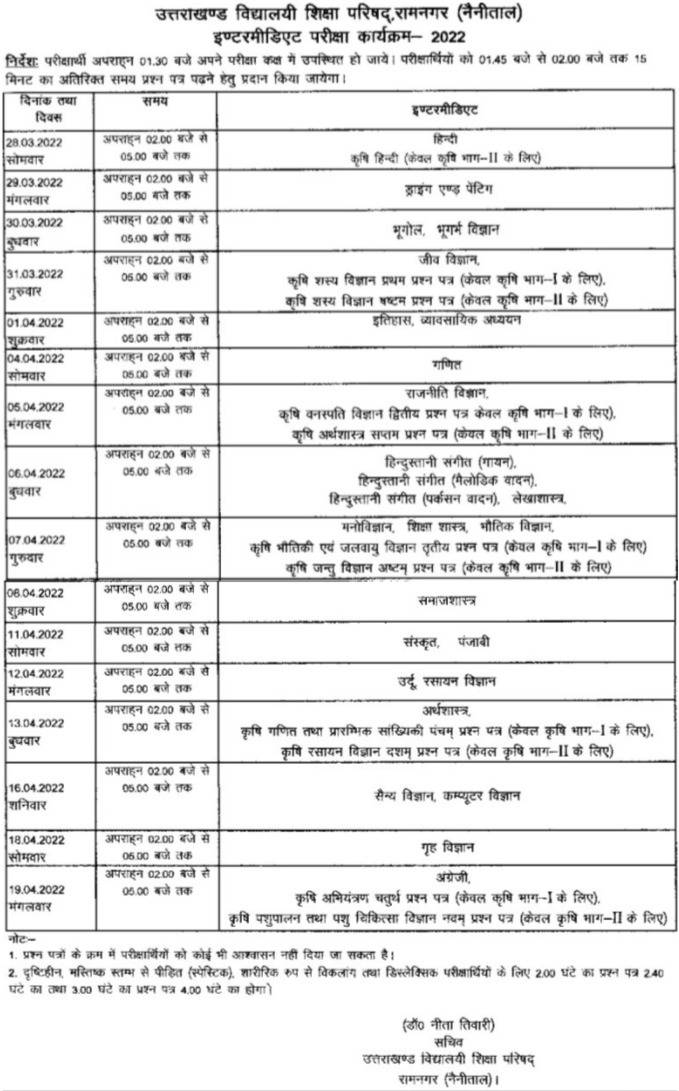 उत्तराखण्ड विद्यालयी शिक्षा परिषद्,रामनगर (नैनीताल)
इण्टरमीडिएट परीक्षा कार्यक्रम– 2022
निर्देशः परीक्षार्थी अपराहन 01.30 बजे अपने परीक्षा कक्ष में उपस्थित हो जाये। परीक्षार्थियों को 01.45 बजे से 02.00 बजे तक 15
मिनट का अतिरिक्त समय प्रश्न पत्र पढ़ने हेतु प्रदान किया जायेगा।
दिनांक तथा दिवस समय इण्टरमीडिएट
28.03.2022 अपराहन 02.00 बजे से हिन्दी
सोमवार 05.00 बजे तक कृषि हिन्दी (केवल कृषि भाग–II के लिए)
29.03.2022 अपराहन 02.00 बजे से
मंगलवार 05.00 बजे तक ड्राइंग एण्ड पेंटिग
30.03.2022 अपराहन 02.00 बजे से
बुधवार 05.00 बजे तक भूगोल, भूगर्भ विज्ञान
31.03.2022 अपराहन 02.00 बजे से जीव विज्ञान,
गुरुवार 05.00 बजे तक कृषि शस्य विज्ञान प्रथम प्रश्न पत्र (केवल कृषि भाग–I के लिए),
कृषि शस्य विज्ञान षष्टम प्रश्न पत्र (केवल कृषि भाग–II के लिए)
01.04.2022 अपराहन 02.00 बजे से इतिहास, व्यावसायिक अध्ययन
शुक्रवार 05.00 बजे तक
04.04.2022 अपराहन 02.00 बजे से
सोमवार 05.00 बजे तक गणित
05.04.2022 अपराहन 02.00 बजे से राजनीति विज्ञान,
मंगलवार 05.00 बजे तक कृषि वनस्पति विज्ञान द्वितीय प्रश्न पत्र केवल कृषि भाग–I के लिए),
कृषि अर्थशास्त्र सप्तम प्रश्न पत्र (केवल कृषि भाग–II के लिए)
06.04.2022 अपराहन 02.00 बजे से हिन्दुस्तानी संगीत (गायन),
बुधवार 05.00 बजे तक हिन्दुस्तानी संगीत (मैलोडिक वादन),
हिन्दुस्तानी संगीत (पर्कसन वादन), लेखाशास्त्र,
07.04.2022 अपराहन 02.00 बजे से मनोविज्ञान, शिक्षा शास्त्र, भौतिक विज्ञान,
गुरुवार 05.00 बजे तक कृषि भौतिकी एवं जलवायु विज्ञान तृतीय प्रश्न पत्र (केवल कृषि भाग–I के लिए)
कृषि जन्तु विज्ञान अष्टम् प्रश्न पत्र (केवल कृषि भाग–II के लिए)
08.04.2022 अपराहन 02.00 बजे से
शुक्रवार 05.00 बजे तक समाजशास्त्र
11.04.2022 अपराहन 02.00 बजे से
सोमवार 05.00 बजे तक संस्कृत, पंजाबी
12.04.2022 अपराहन 02.00 बजे से
मंगलवार 05.00 बजे तक उर्दू, रसायन विज्ञान
13.04.2022 अपराहन 02.00 बजे से अर्थशास्त्र,
बुधवार 05.00 बजे तक कृषि गणित तथा प्रारम्भिक सांख्यिकी पंचम् प्रश्न पत्र (केवल कृषि भाग–I के लिए),
कृषि रसायन विज्ञान दशम् प्रश्न पत्र (केवल कृषि भाग–II के लिए)
16.04.2022 अपराहन 02.00 बजे से
शनिवार 05.00 बजे तक सैन्य विज्ञान, कम्प्यूटर विज्ञान
18.04.2022 अपराहन 02.00 बजे से
सोमवार 05.00 बजे तक गृह विज्ञान
19.04.2022 अपराहन 02.00 बजे से अंग्रेजी,
मंगलवार 05.00 बजे तक कृषि अभियंत्रण चतुर्थ प्रश्न पत्र (केवल कृषि भाग–I के लिए),
कृषि पशुपालन तथा पशु चिकित्सा विज्ञान नवम् प्रश्न पत्र (केवल कृषि भाग–II के लिए)
नोटः–
1. प्रश्न पत्रों के क्रम में परीक्षार्थियों को कोई भी आश्वासन नहीं दिया जा सकता है।
2. दृष्टिहीन, मस्तिष्क स्तम्भ से पीड़ित (स्पेस्टिक), शारीरिक रुप से विकलांग तथा डिस्लेक्सिक परीक्षार्थियों के लिए 2.00 घंटे का प्रश्न पत्र 2.40
घंटे का तथा 3.00 घंटे का प्रश्न पत्र 4.00 घंटे का होगा।
(डॉ० नीता तिवारी)
सचिव
उत्तराखण्ड विद्यालयी शिक्षा परिषद्
रामनगर (नैनीताल)।